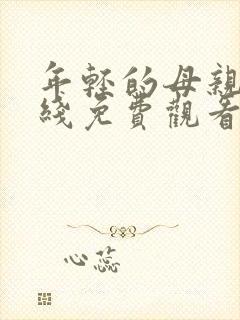 年輕的母親
綫免費觀看
心蕊